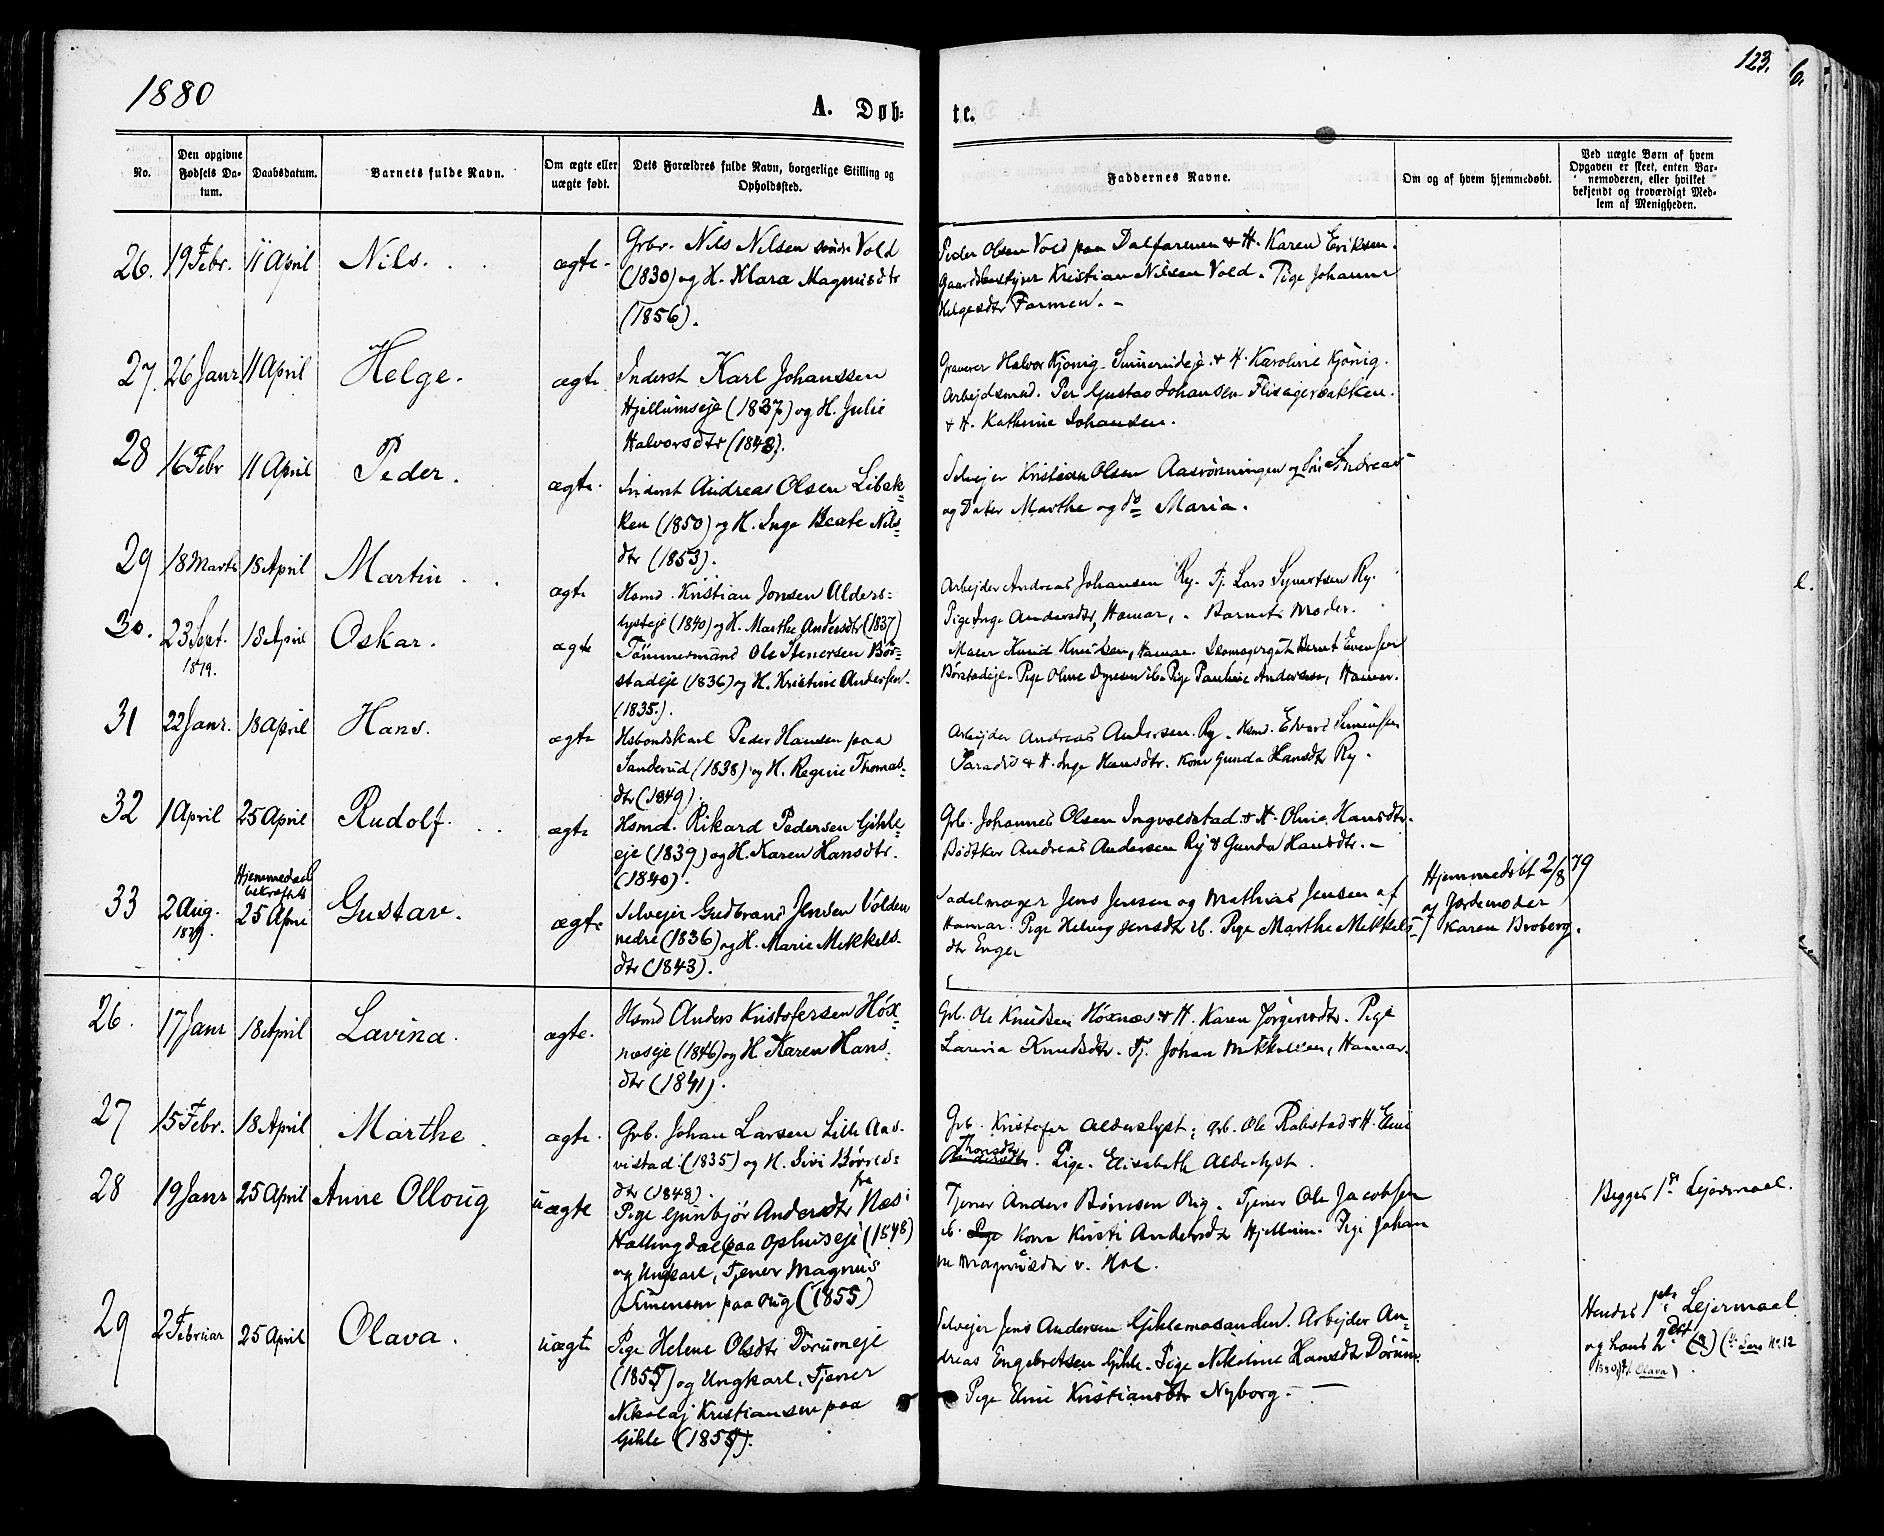 1880
A. Døb=
te.
123.
No.
Den opgivne Fødsels Da-tum.
Daabsdatum.
Barnets fulde Navn.
Om ægte eller uægte født.
Dets Forældres fulde Navn, borgerlige Stilling og Opholdssted.
Faddernes Navne.
Om og af hvem hjemmedøbt.
Ved uægte Børn af hvem Opgaven er skeet, enten Bar-nemoderen, eller hvilket bekjendt og troværdigt Med-lem af Menigheden.
26. 19 Febr. 11 April Nils. ægte. Grbr. Nils Nilsen Vold
(1830) og H. Klara Magnusdtr
(1856).
Peder Olsen Vold paa Dalfarmen & H. Karen Eriksen.
Gaardbestyrer Kristian Nilsen Vold. Pige Johanne
Helgesdtr Farmen. -
27. 26 Janr. 11 April Helge. ægte Inderst Karl Johanssen
Hjellumseje (1837) og H. Julie
Halvorsdtr (1848).
Graverer Halvor Kjønig & H. Karoline Kjønig.
Arbejdsmd. Per Gustav Johansen Flisagerbakken.
& H. Kathrine Johansen.
28 16 Febr 11 April Peder. ægte. Inderst Andreas Olsen Libak=
ken (1850) og H. Inge Beate Nils=
dtr (1853).
Selvejer Kristian Olsen Aasrønningen og Søn Andreas
og Datter Marthe og do Maria.
29 18 Marts 18 April Martin. ægte Hsmd. Kristian Jonsen Alders=
lysteje (1840) og H. Marthe Andersdtr (1837)
Arbejder Andreas Johansen Ry. Tj. Lars Syvertsen Ry.
Pige Inge Andersdtr, Hamar, . Barnets Moder.
30. 23 Sept. 1879. 18 April Oskar. ægte Tømmermand Ole Stenersen Bør=
stadeje (1836) og H. Kristine Andersen.
(1835.).
Maler Knud Knudsen, Hamar. Bernt Evensen
Børstadeje. Pige Oline ib. Pige Pauline Andersen, Hamar.
31 22 Janr. 18 April Hans. ægte Husbondskarl Peder Hansen paa
Sanderud (1838) og H. Regine Thomas=
dtr (1849).
Arbejder Andreas Andersen Ry. Hsmd. Edvard Simensen
Paradis & H. Inge Hansdtr. Kone Gunda Hansdtr Ry.
32 1 April 25 April Rudolf. ægte Hsmd. Rikard Pedersen Gihle=
eje (1839) og H. Karen Hansdtr.
(1840).
Grb. Johannes Olsen Ingvoldstad & H. Oline Hansdtr.
Bødtker Andreas Andersen Ry & Gunda Hansdtr. -
33 2 Aug. 1879. Hjemmedaab bekræftet 25 April Gustav. ægte Selvejer Gudbrand Jensen Volden
nedre (1836) og H. Marie Mikkels-
dtr (1843).
Sadelmager Jens Jensen og Mathias Jensen af
Hamar. Pige Helvig Jensdtr ib. Pige Marthe Mikkels=
dtr Enger
Hjemmedøbt 2/8 79
af Jordemoder
Karen Broberg.
26. 17 Janr 18 April Lavina. ægte. Hsmd Anders Kristofersen Høx=
næseje (1846) og H. Karen Hans.
dtr (1841).
Grb. Ole Knudsen Hoxnæs & H. Karen Jørgensdtr. Pige
Lavina Knudsdtr. Tj. Johan Mikkelsen, Hamar.
27 15 Febr. 18 April Marthe. ægte. Grb. Johan Larsen Lille Aas-
vistad (1835) og H. Sivi Børres=
dtr (1848).
Grb. Kristofer Alderslyst; Grb. Ole Rabstad & H. Eline
Thonsdtr. Pige. Elisabeth Alderslyst.
28 19 Janr 25 April Anne Olloug uægte Pige Gunbjør Andersdtr fra Næs i
Hallingdal (paa Ophuseje (1848)
og Ungkarl, Tjener Magnus
Simensen paa Ouig (1855)
Tjener Anders Børresen Ouig. Tjener Ole Jacobsen
ib. Kone Kirsti Andersdtr Hjellum. Pige Johan
ne Magnusdtr v. Hol.
Begges 1ste Lejermaal.
29 2 Februar 25 April Olava. uægte Pige Helene Olsdtr Dørumeje
(1855) og Ungkarl, Tjener
Nikolaj Kristiansen paa
Gihle (1854).
Selvejer Jens Andersen Gihlemosanden. Arbejder An=
dreas Engebretsen Gihle. Pige Nikoline Hansdtr Dørum
Pige Eline Kristiansdtr Nyborg. -
Hendes 1ste Lejermaal
og hans 2det